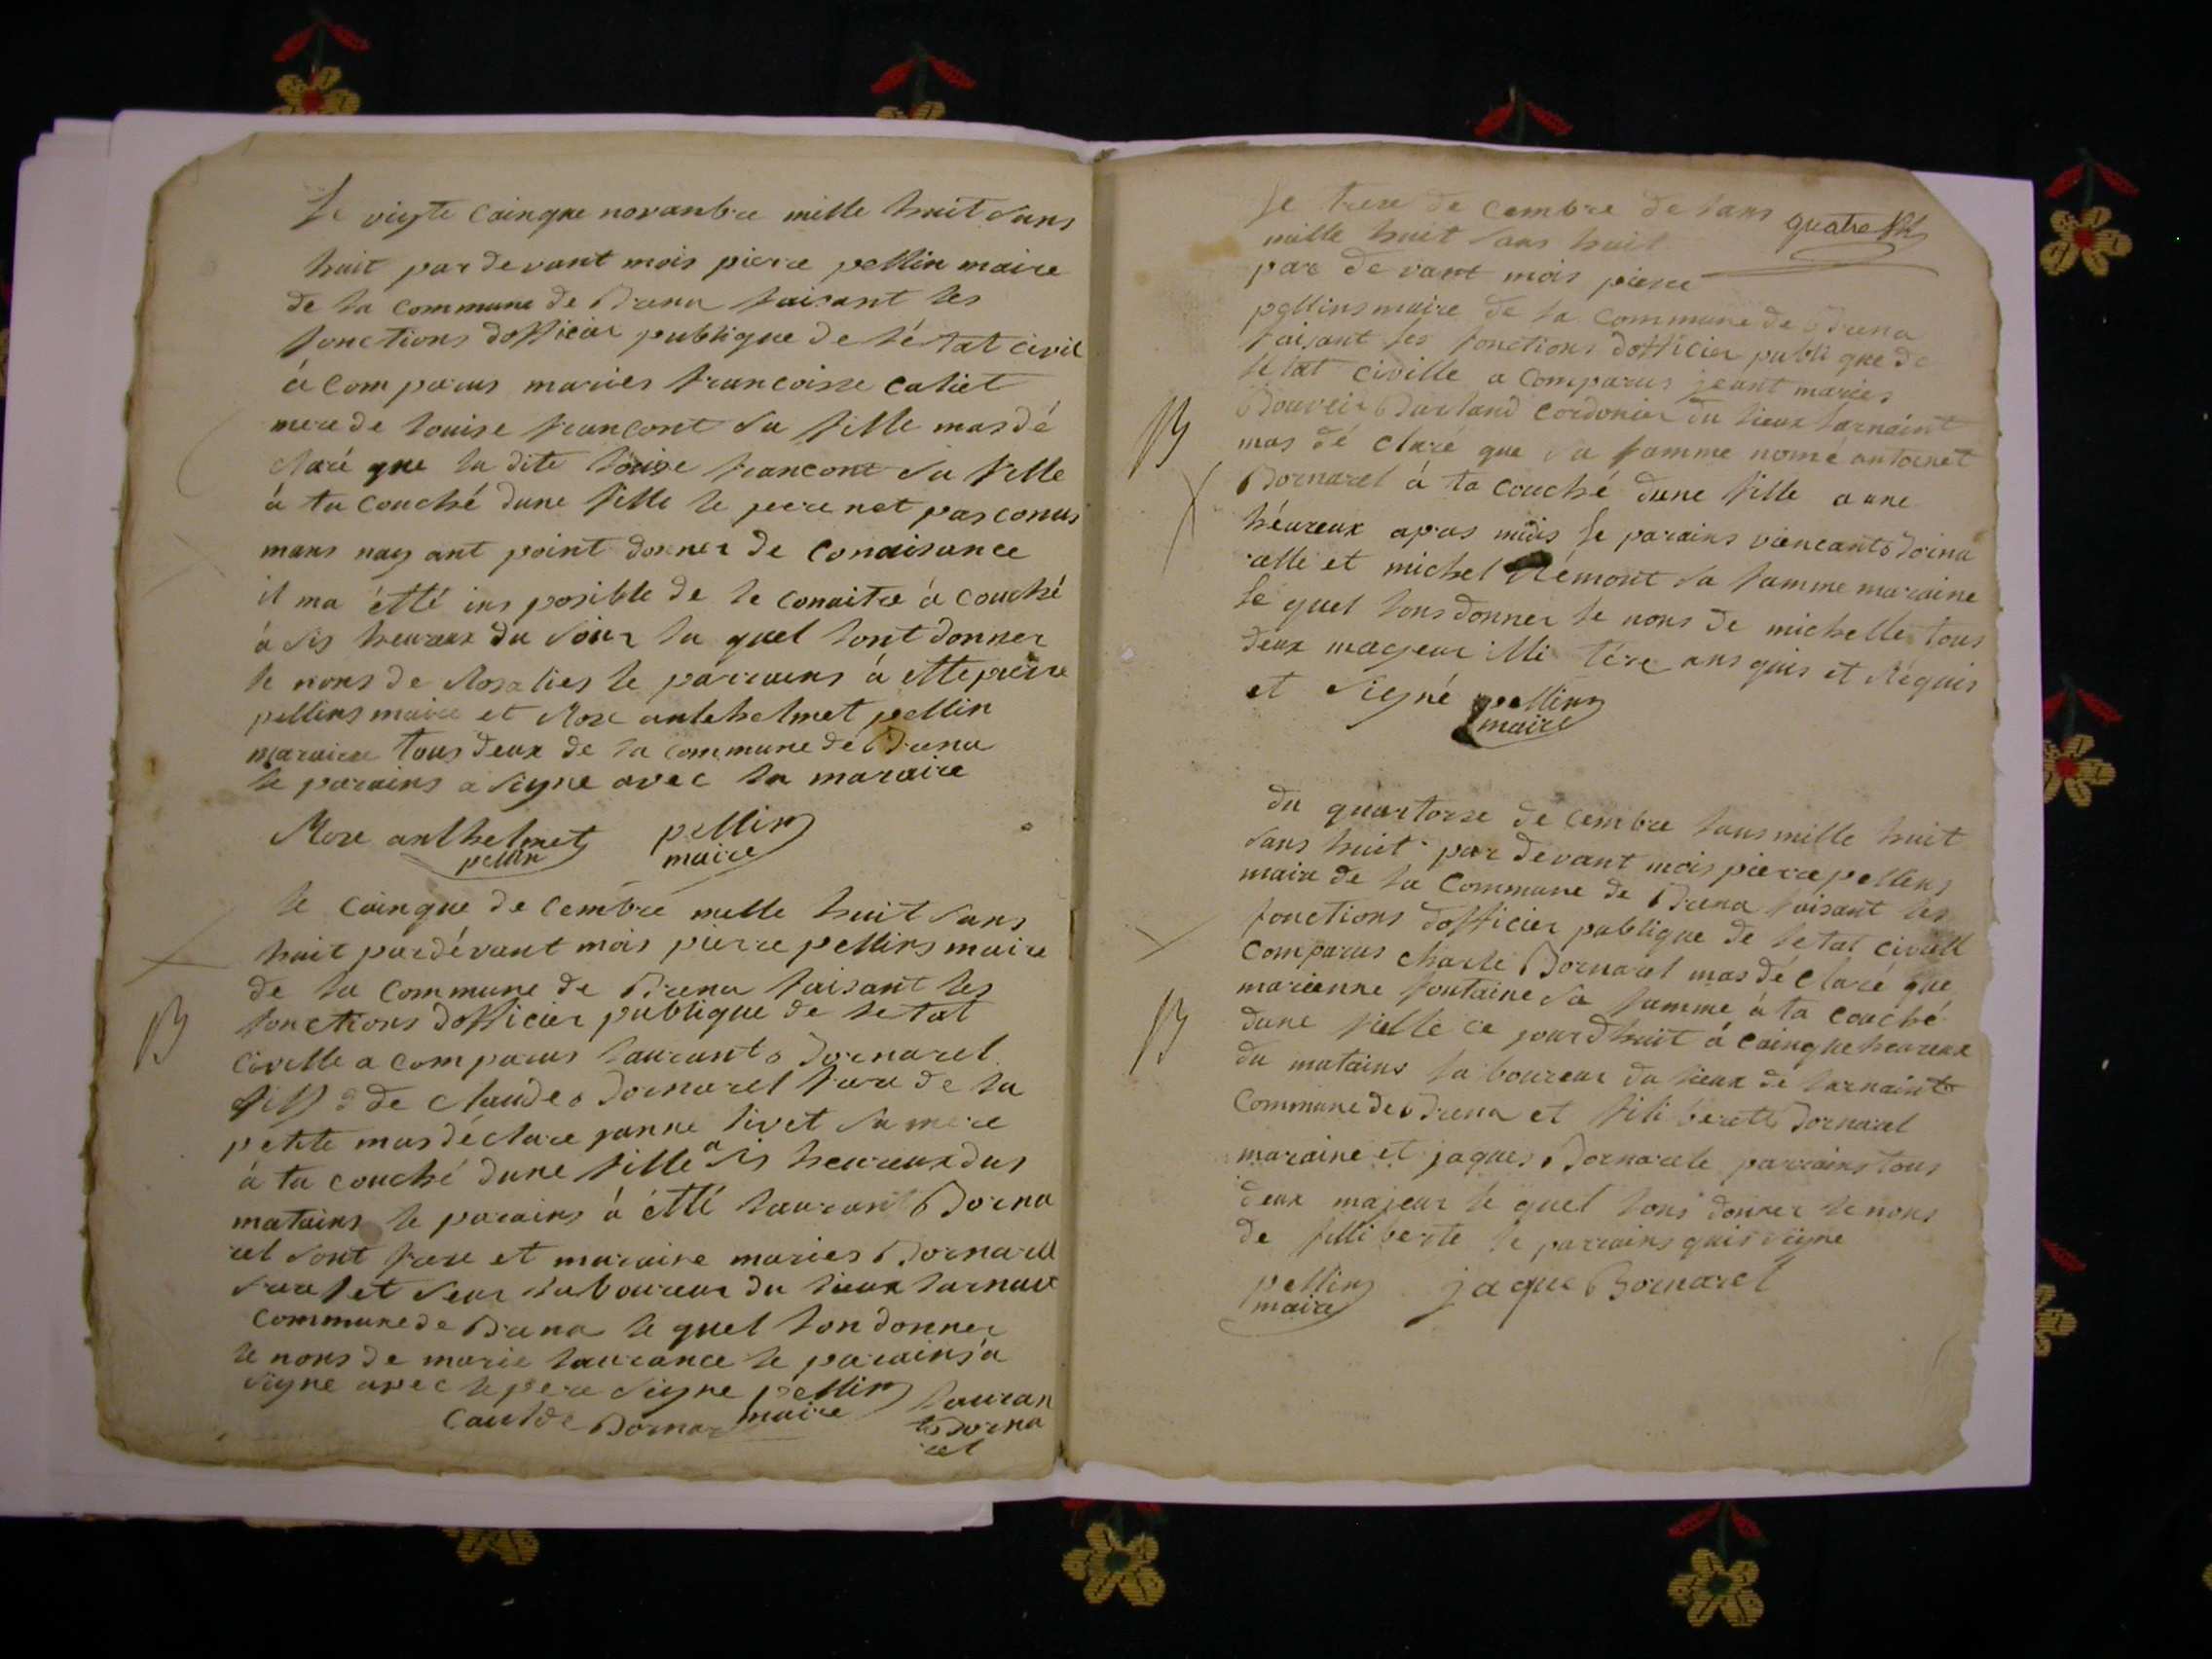 Le vignte cainque novanbre mille huit sans
huit par devant mois pierre pellin maire
de la commune de Drena faisant les
fonctions dofficier publique de létat civil
á comparus maries francoisse caliet
mere de louise francont sa fille mas dé
claré que la dite louise francont sa fille
á ta couché dune fille le pere net pas conus
mans nay ant point donner de conaisance
il ma étté ins posible de le conaitre á couché
á sis heureux du soir la quel lont donner
le nons de Rosalies le parrains á etté pierre
pellins maire et Rose anthelmet pellin
maraine tous deux de la commune de Drena
le parains a signe avec la maraire
Rose anthelmet pellin
pellin maire
le cainque de cembre mille huit sans
huit pardévant mois pierre pellins maire
de la commune de Drena faisant les
fonctions dofficier publique de letat
civille a comparus laurant Bornarel
fils de claude Bornarel frere de la
petite mas déclare janne livet sa mere
á ta couché dune fille a sis heureux dus
matains le parains á étté laurant Borna
rel sont frere et maraine maries Bornarell
frere et seur laboureur du lieux larnait
commune de Drena le quel lon donner
le nons de marie laurance le parains a
signe avec le pere signe pellin lauran
caulde Bornar maire t Borna
rel
Le treze de cembre de lans quatre
mille huit sans huit
par de vant mois pierre
pellins maire de la commune de Drena
faisant les fonctions dofficier publique de
letat civille a comparus jeant maries
Bouveir Burland cordonier du lieux larnaint
B
mas dé claré que sa famme nomé antoinet
Bornarel á ta couché dune fille a une
héureux apras midis le parains vincant Borna
relle et michel Rémont sa famme maraine
le quel lons donner le nons de michelle tous
deux mageur illi tére ans quis et Réquis
et signé pellins
maire
du quartorze de cembre lans mille huit
sans huit par devant mois pierre pellins
maire de la commune de Drena faisant les
fonctions dofficier publique de letat civill
comparus charle Bornarel mas dé claré que
marienne fontaine sa famme á ta couché
B
dune fielle ce jourdhuit á cainque heureux
du matains laboureur du lieux de larnaint
commune de Drena et filiberte Bornarel
maraine et jaques Bornarele parrains tous
deux majeur le quel lons donner le nons
de filliberte le parrains quis signe
pellin jaque Bornarel
maire
B